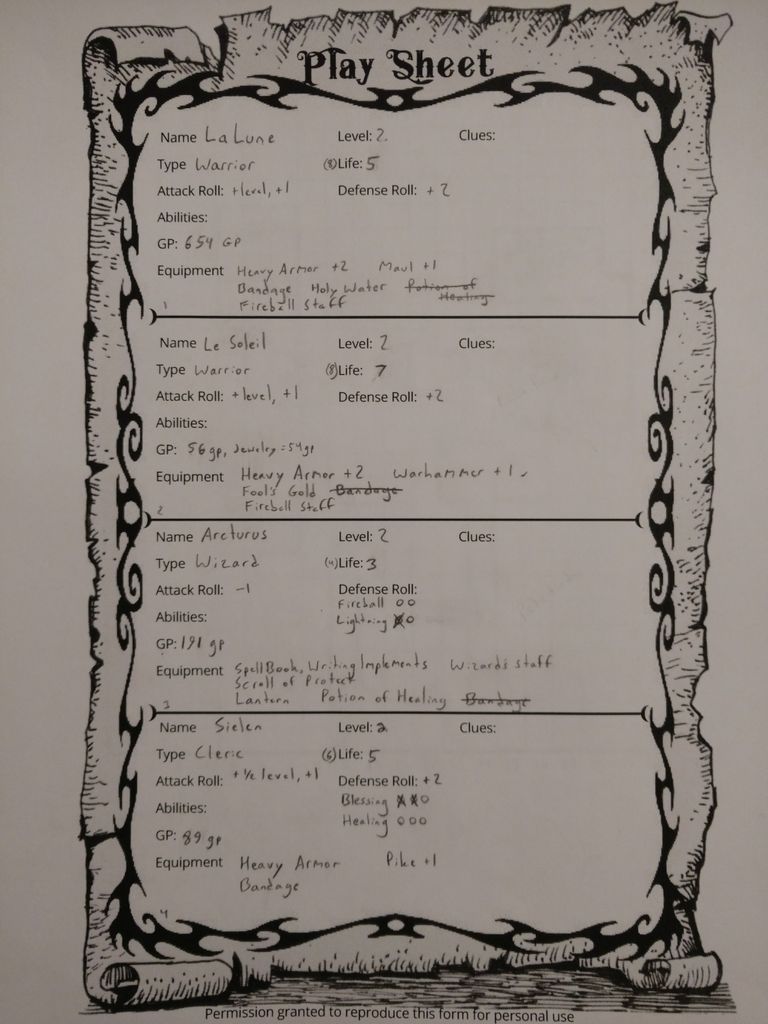 Play Sheet
Name La Lune Level: 2 Clues:
Type Warrior (8) Life: 5
Attack Roll: +level, +1 Defense Roll: +2
Abilities:
GP: 654 GP
Equipment Heavy Armor +2 Maul +1
Bandage Holy Water Potion of
Healing
Fireball Staff
1
Name Le Soleil Level: 2 Clues:
Type Warrior (8) Life: 7
Attack Roll: +level, +1 Defense Roll: +2
Abilities:
GP: 56 gp, Jewelry = 54gp
Equipment Heavy Armor +2 Warhammer +1
Fool's Gold Bandage
Fireball Staff
2
Name Arcturus Level: 2 Clues:
Type Wizard (4) Life: 3
Attack Roll: -1 Defense Roll:
Fireball OO
Abilities: Lightning XO
GP: 191 gp
Equipment SpellBook, Writing Implements Wizards Staff
Scroll of Protect
Lantern Potion of Healing Bandage
3
Name Sielen Level: 2 Clues:
Type Cleric (6) Life: 5
Attack Roll: +½ level, +1 Defense Roll: +2
Blessing XXO
Abilities: Healing OOO
GP: 89 gp
Equipment Heavy Armor Pike +1
Bandage
4
Permission granted to reproduce this form for personal use